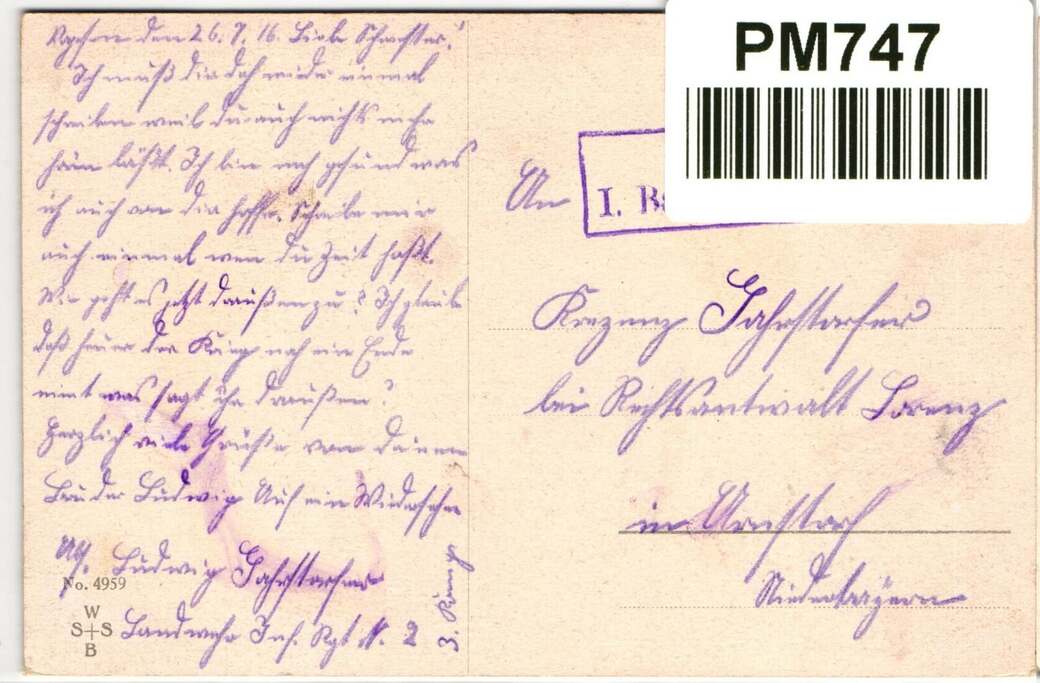 den 26.7.16. Liebe Schwester!
Ich muß dir doch wieder einmal
schreiben weil du auch nichts mehr
hören läßt. Ich bin noch gesund was
ich auch von dir hoffe. Schreibe mir
auch einmal wen du Zeit hast.
Wie geht es jetzt draußen zu? Ich glaube
daß heuer der Krieg noch ein Ende
nimt was sagt ihr draußen?
Herzlich viele Grüße von deinem
Bruder Ludwig Auf ein Wiedersehn
Ludwig
Landwehr Inf. Rgt N. 2
3. Komp
No. 4959
W
S+S
B
PM747
An
I. B
Krezenz
bei Rechtsanwalt Lorenz
in Arnstorf
Niederbayern